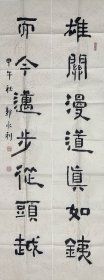 雄關漫道真如鐵
而今邁步從頭越
甲午秋郭永利